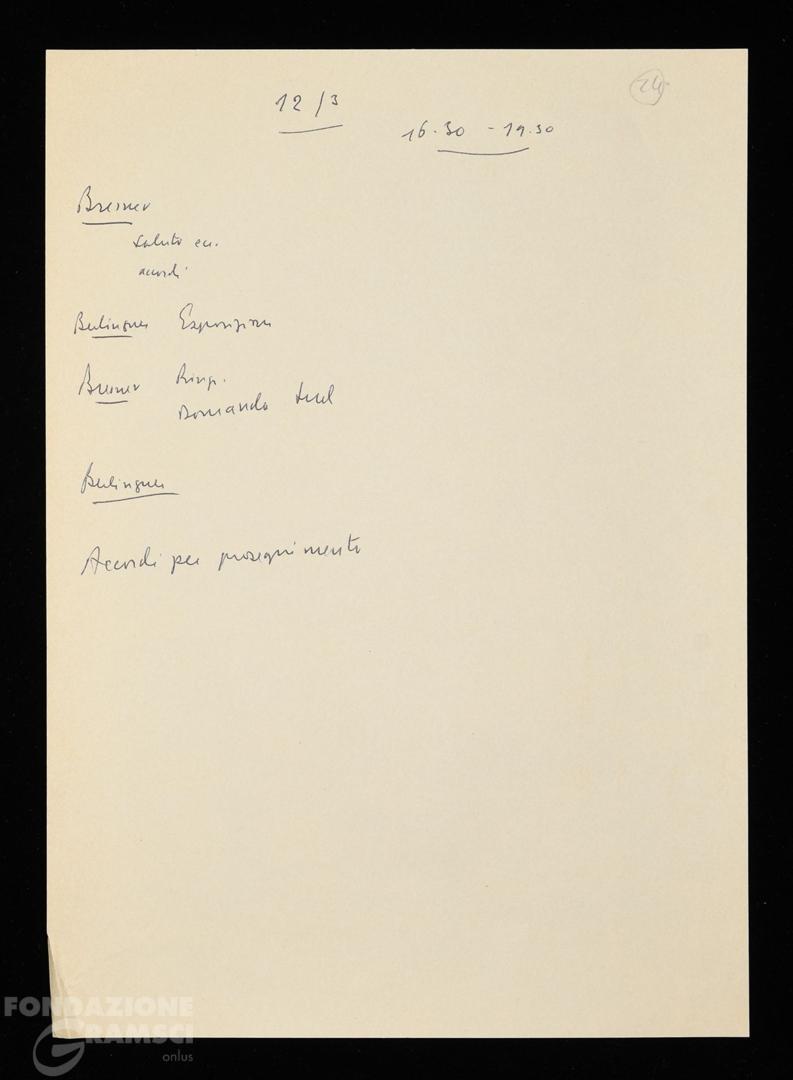 24
12/3
16.30 - 19.30
Bresnev
saluto ecc.
accordi
Berlinguer Esposizione
Bresnev Ring.
Domanda
Berlinguer
Accordi per proseguimento
FONDAZIONE
GRAMSCI
onlus